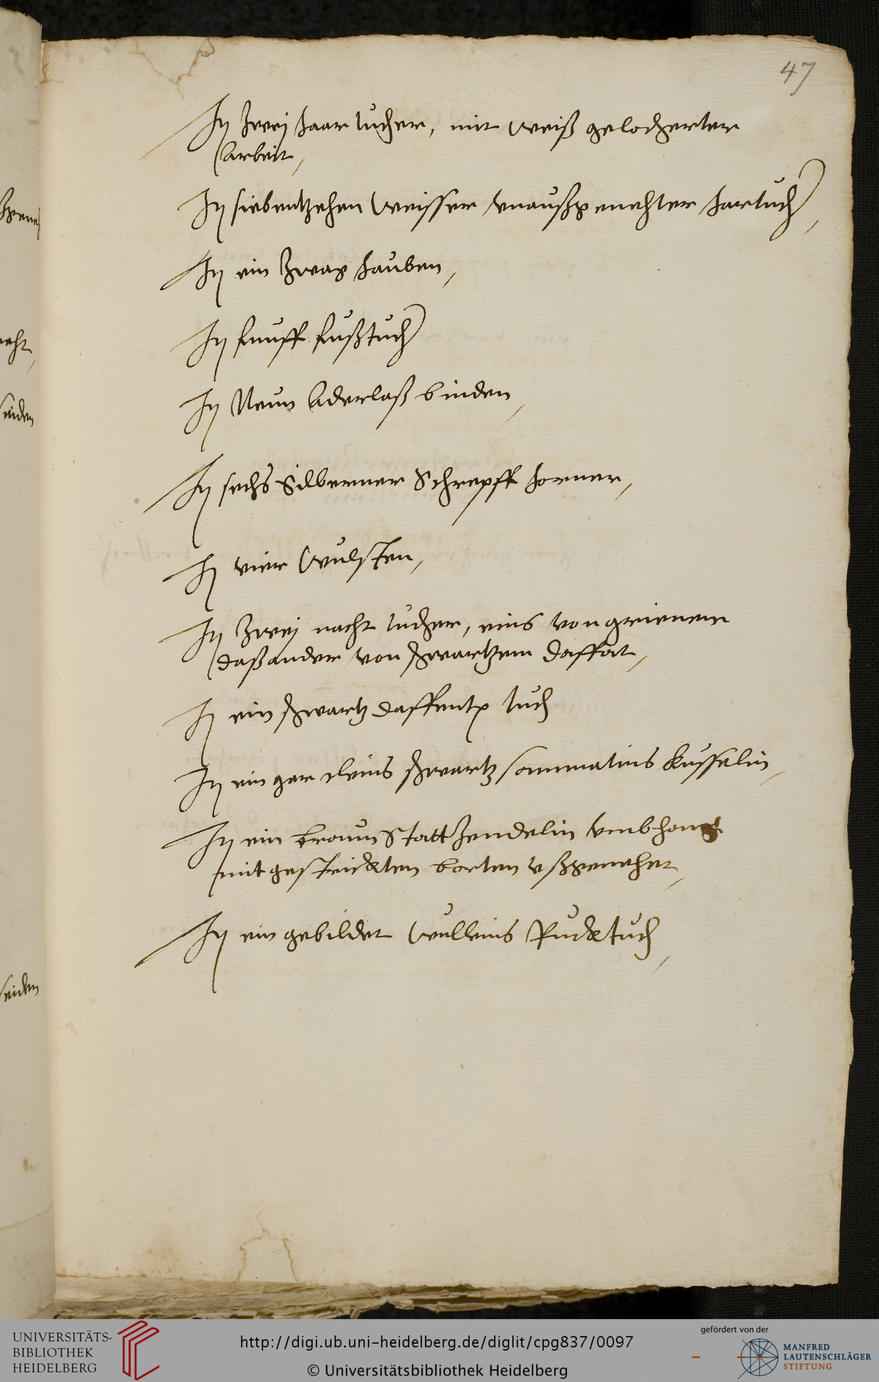 47
Itẽ zwej haar tucher, mit weiß gelocherter
arbeit,
Itẽ siebentzehen weisser vnaußgemechter hartucher,
Itẽ ein zwag hauben,
Itẽ funff fußtucher
Itẽ Neun aderlaß binden,
Itẽ sechs Silberner Schrepff horner,
Itẽ vier wulsten,
Itẽ zwej nacht tucher, eins von grienem
daß ander von schwartzem daffat,
Itẽ ein schwartz daffent tuch
Itẽ ein gar cleins schwartz sammatins kusselin,
Itẽ ein braun Statt zendelin vmbhang
mit gestrickten borten vßgemehet,
Itẽ ein gebildet wulleins Rucktuch,
seiden
seiden
UNIVERSITÄTS-
BIBLIOTHEK
HEIDELBERG
http://digi.ub.uni-heidelberg.de/diglit/cpg837/0097
© Universitätsbibliothek Heidelberg
gefördert von der
MANFRED
LAUTENSCHLÄGER
STIFTUNG